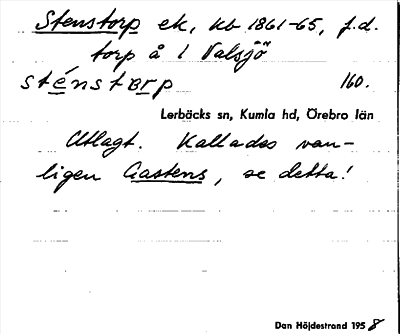 Stenstorp ek, kb 1861-65, f.d.
torp å 1 Valsjö
sténstɒrp 160.
Lerbäcks sn, Kumla hd, Örebro län
Utlagt. Kallades van-
ligen Gastens, se detta!
Dan Höjdestrand 1958